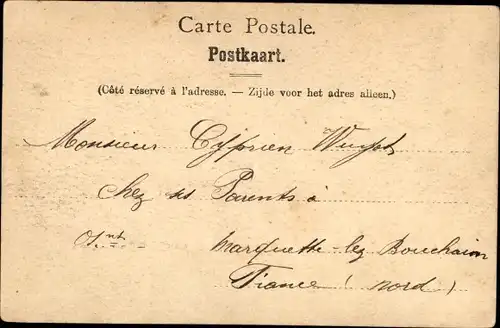 Carte Postale.
Postkaart.
(Côté réservé à l'adresse. — Zijde voor het adres alleen.)
Monsieur Cyprien
chez ses Parents à
Marquette-lez Bouchain
France (Nord)